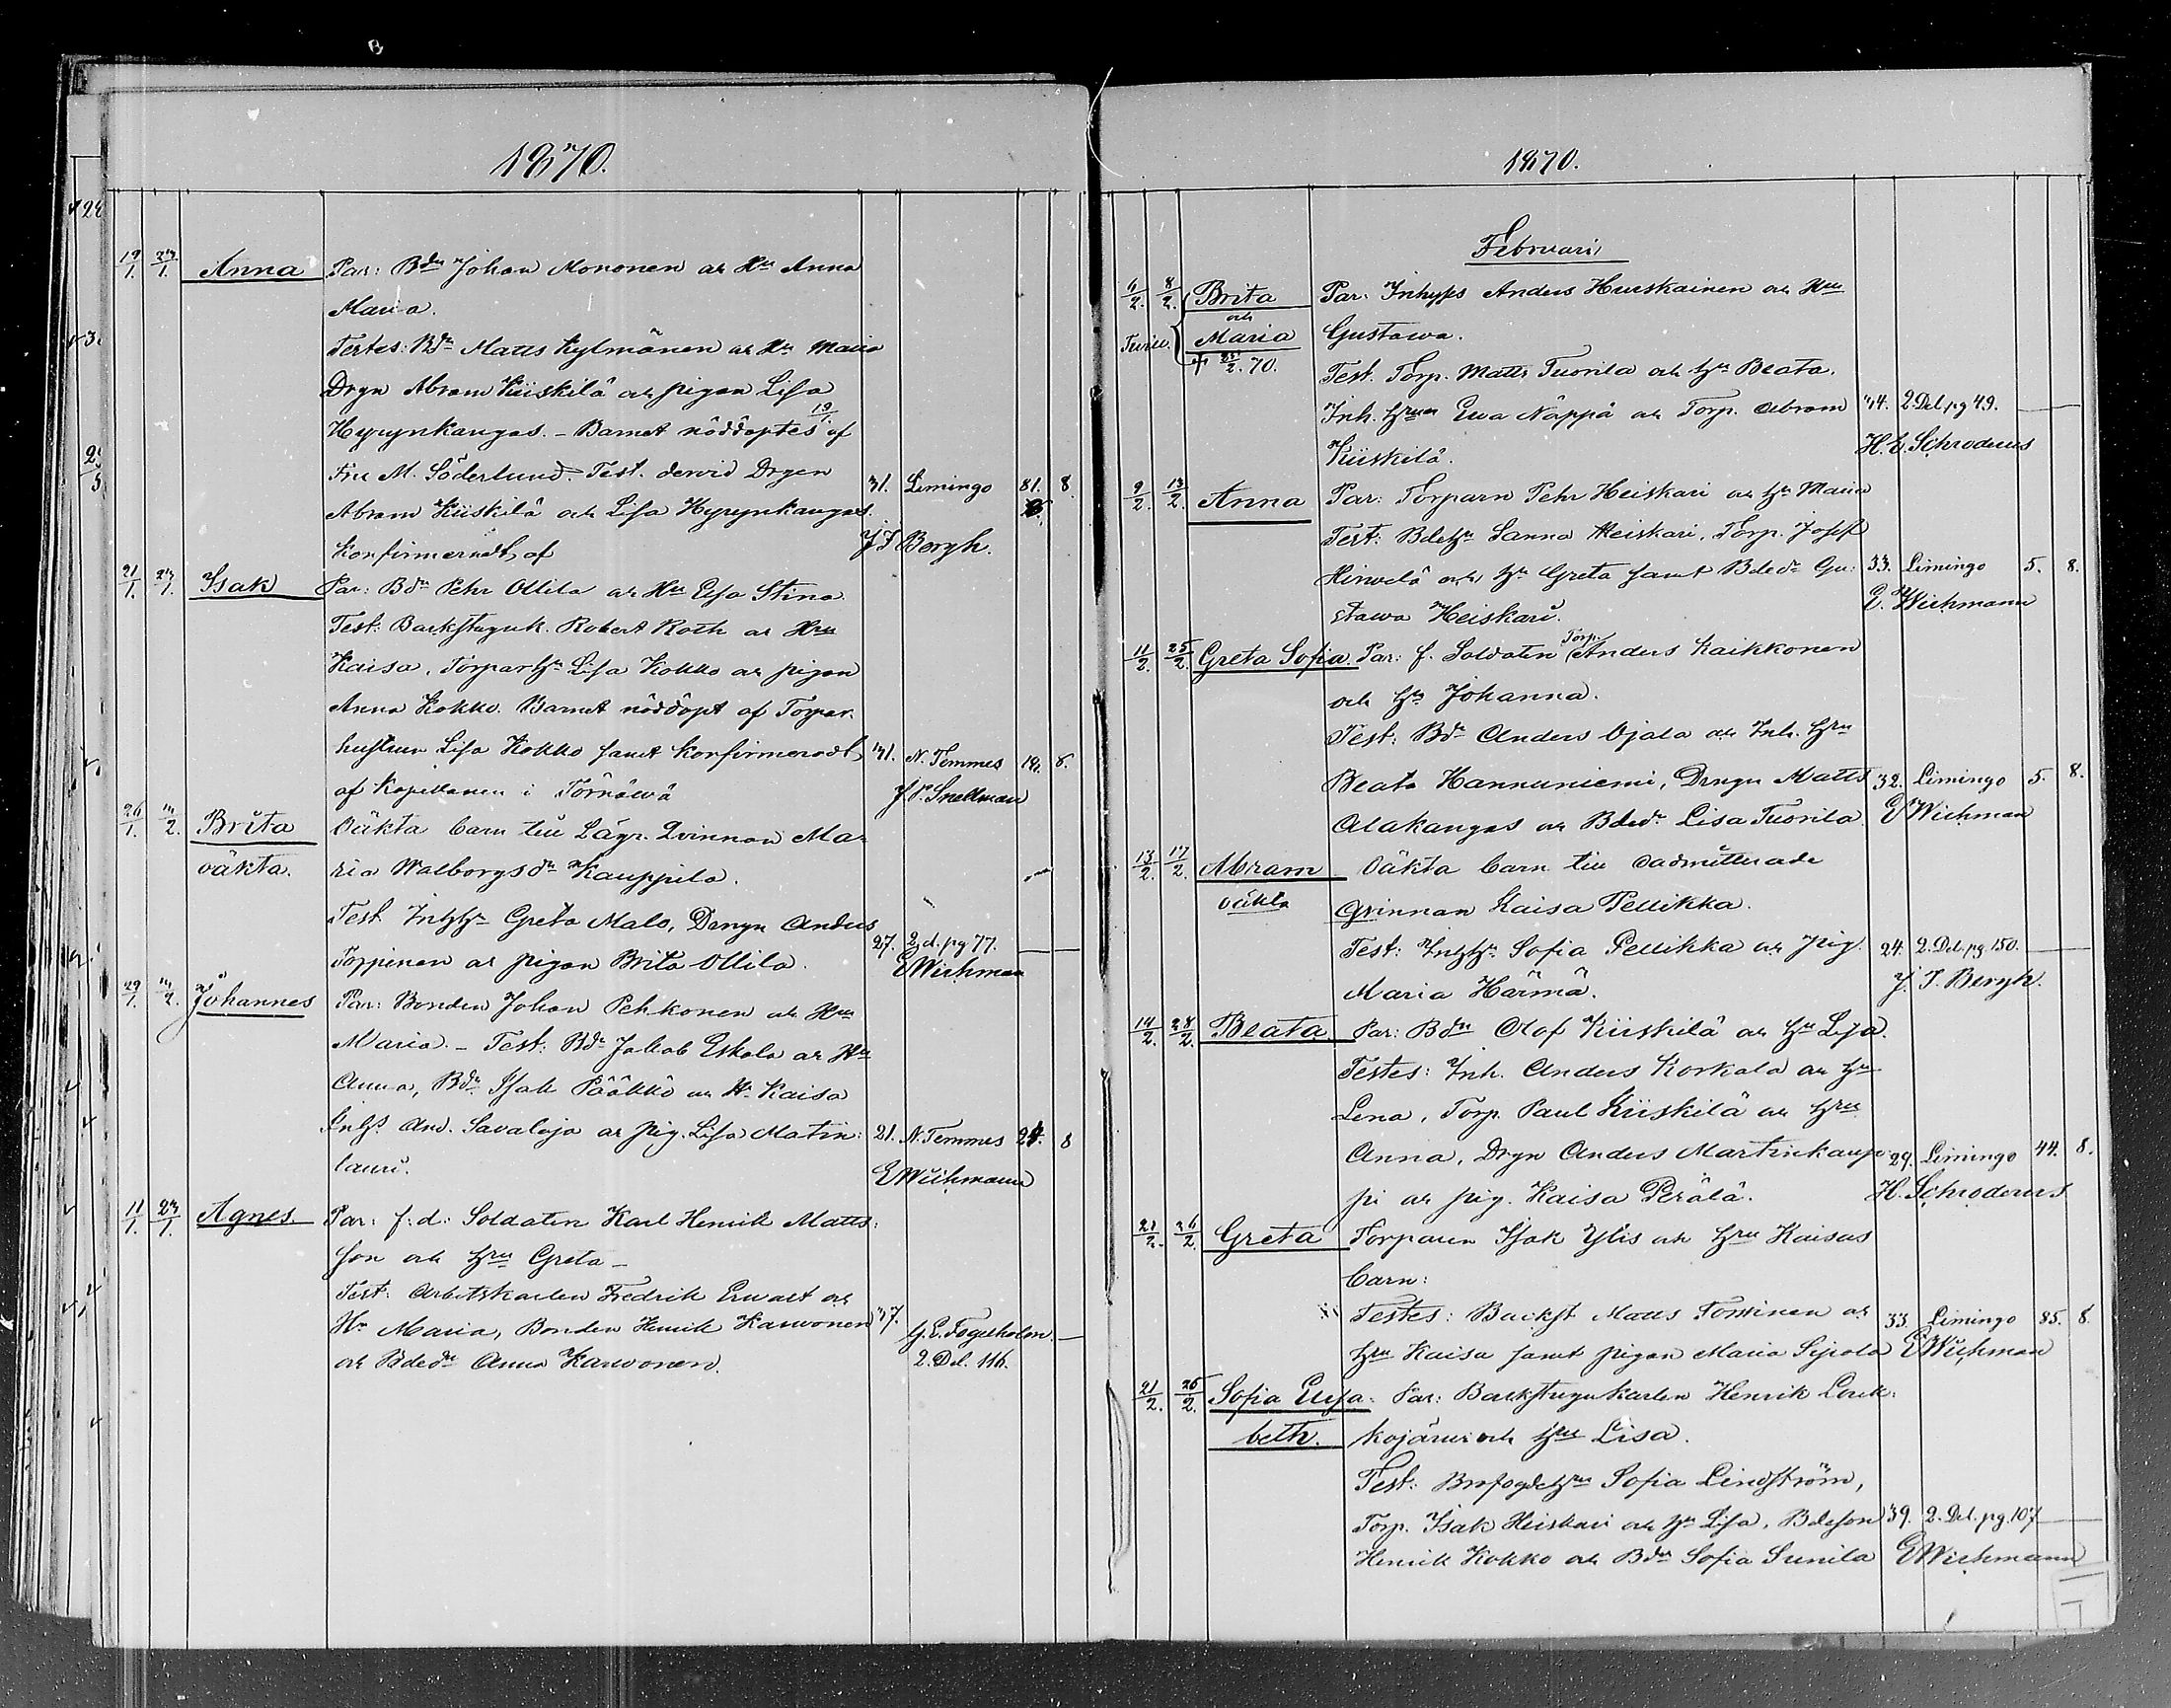 1870.
19/1. 23/1. Anna Par: Bdn Johan Mononen och Hu Anna
Maria.
Testes: Bdn Matts Kylmänen och Hu Maria
Drgn Abram Kiiskilä och pigan Lisa
Hyrynkangas. – Barnet nöddöptes 19/1. af
Fru M. Söderlund. Test. dervid Drgen
31. Limingo 81. 8.
Abram Kiiskilä och Lisa Hyrynkangas.
Konfirmeradt af J F Bergh.
21/1. 23/1. Isak Par: Bdn Pehr Ollila och Hu Elsa Stina
Test: Backstuguk. Robert Roth och Hru
Kaisa, Torparhu Lisa Kokko och pigan
Anna Kokko. Barnet nöddöpt af Torpar-
hustrun Lisa Kokko samt konfirmeradt 31. N. Temmes 19. 8.
af Kapellanen i Törnäwä J. F. Snellman
26/1. 2. Brita Oäkta barn till Lägr. Qvinnan Ma-
oäkta. ria Walborgsdr Kauppila.
Test Inhhu Greta Malo, Drengn Anders
Toppinen och pigan Brita Ollila. 27. 2 d. pg 77. —
E Wichman
29/1. 2. Johannes Par: Bonden Johan Pehkonen och Hru
Maria. – Test: Bdn Jakob Eskola och Hu
Anna, Bdn Isak Pääkkö och Hu Kaisa
Inhs And. Savaloja och pig. Lisa Matin- 21. N. Temmes 24. 8
lauri. E Wichmann
11/1. 23/1. Agnes Par: f: d: Soldaten Karl Henrik Matts-
son och hru Greta –
Test: Arbetskarlen Fredrik Erwast och
Hu Maria, Bonden Henrik Karwonen 37. G. E. Fogelholm. —
och Bdedr Anna Karwonen. 2. Del. 116.
1870.
Februari
6/2. 8/2. Brita Par: Inhyses Anders Hurskainen och Hru
och
Maria Gustawa.
† 2. 70. Test. Torp. Matts Tuorila och hu Beata.
Inh. hrun Ewa Näppä och Torp. Abram 34. 2. Del pg 49. —
Kiiskilä. H. E. Schroderus
9/2. 13/2. Anna Par: Torparn Pehr Heiskari och hu Maria
Test: Bdehu Sanna Heiskari, Torp. Josef
Hirwelä och hu Greta samt Bdedr Gu- 33. Limingo 5. 8.
stawa Heiskari. E. Wichmann
11/2. 25/2. Greta Sofia. Par: f. Soldaten Torp. Anders Kaikkonen
och hu Johanna.
Test: Bdn Anders Ojala och Inh. hru
Beata Hannuniemi, Drengn Matts 32. Limingo 5. 8.
Alakangas och Bdedr Lisa Tuorila E Wichman
13/2. 17/2. Abram Oäkta barn till oadmitterade
oäkta Qvinnan Kaisa Pellikka.
Test: Inhhu Sofia Pellikka och pig. 24. 2. Del. pg 150. —
Maria Härmä. J. F. Bergh.
14/2. 28/2. Beata Par: Bdn Olof Kiiskilä och hu Lisa.
Testes: Inh. Anders Korkala och hu
Lena, Torp. Paul Kiiskilä och hru
Anna, Drgn Anders Martinkaup- 29. Limingo 44. 8.
pi och pig. Kaisa Perälä. H. Schroderus
21/2. 26/2. Greta Torparen Isak Ylis och hru Kaisas
barn:
Testes: Backst Matts Tommnen och 33. Limingo 85. 8.
hru Kaisa samt pigan Maria Sipola E Wichman
21/2. 26/2. Sofia Elisa- Par: Backstugukarlen Henrik Louk-
beth. kojärwi och hru Lisa.
Test: Brofogdehu Sofia Lindström,
Torp. Isak Heiskari och hu Lisa, Bdeson 39. 2. Del. pg. 107 —
Henrik Kokko och Bdr Sofia Sunila E Wichmann